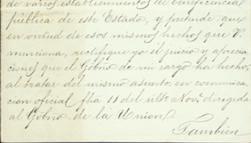 de varios establecimientos de beneficencia
pública de este Estado, y pretende que
en virtud de esos mismos hechos que V.
menciona, rectifique yo el juicio y aprecia
ciones que el Gobno de mi cargo ha hecho,
al tratar del mismo asunto en comunica
cion oficial fha 11 del ulto Nove. dirigida
al Gobno de la Union.
Tambien